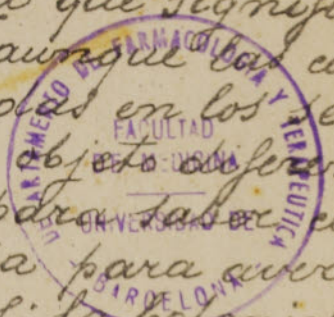 que signif
aunque las c
das en los se
objeto diferen
podra saber
a para ave
DEPARTAMENTO DE FARMACOLOGIA Y TERAPEUTICA
FACULTAD
DE MEDICINA
UNIVERSIDAD DE
BARCELONA